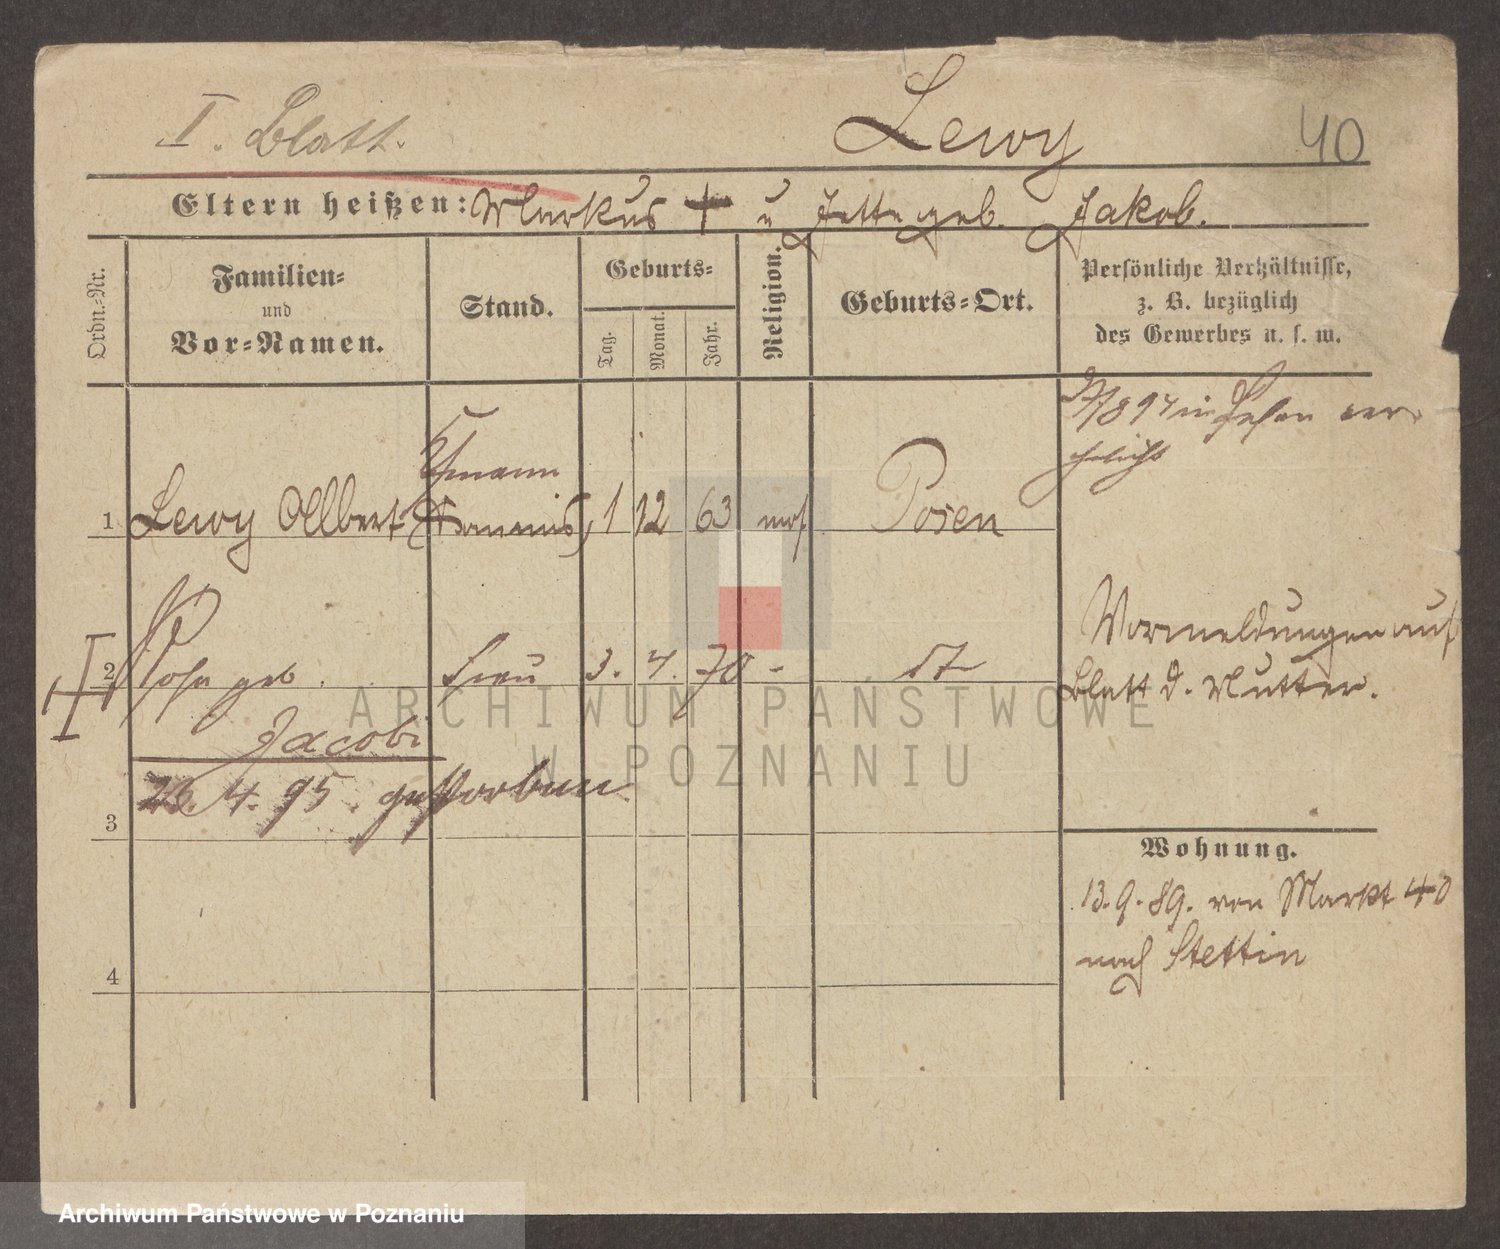 I. Blatt.
Lewy
40
Eltern heißen: Markus † u Jette geb. Jakob.
Ordn.-Nr.
Familien-
und
Vor-Namen.
Stand.
Geburts-
Tag.
Monat.
Jahr.
Religion.
Geburts-Ort.
Persönliche Verhältnisse,
z. B. bezüglich
des Gewerbes u. s. w.
894 in ver-
ehelicht
Kfmann
1 Lewy Albert (Kommis) 1 12 63 mos Posen
2 Rosa geb. Frau 3. 4. 70 -
Jacobi
Vormeldungen auf
Blatt d. Mutter.
23. 4. 95. gestorben
3
Wohnung.
13.9.89. von Markt 40
nach Stettin
4
ARCHIWUM PAŃSTWOWE
W POZNANIU
Archiwum Państwowe w Poznaniu